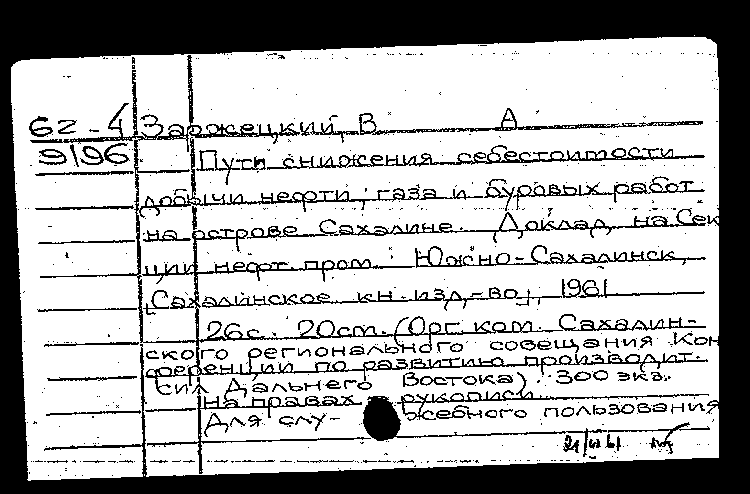 62-4 Заржецкий, В А
9196 Пути снижения себестоимости
добычи нефти, газа и буровых работ
на острове Сахалине. Доклад на Сек
ции нефт. пром. Южно-Сахалинск,
[Сахалинское кн. изд-во], 1961
26с. 20см. (Орг. ком. Сахалин-
ского регионального совещания Кон
ференции по развитию производит.
сил Дальнего Востока). 300 экз.
на правах рукописи
Для слу- жебного пользования